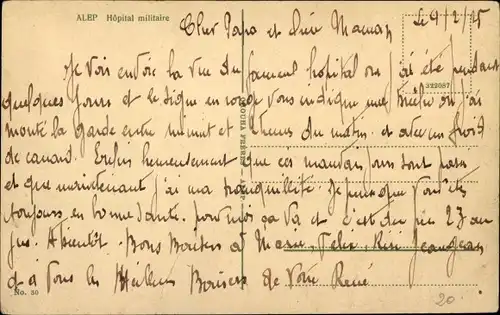 ALEP Hôpital militaire
Le 9/2/25
Cher Papa et chère Maman
Je vois envoie la vue du fameux hopital ou j'ai été pendant
quelques jours et le signe en rouge vous indique une où j'ai
322087
monté la garde entre minuit et heures du matin et avec un froid
de canard. Enfin heureusement que ces mauvais jours sont passés
et que maintenant j'ai ma tranquillité. Je pense que vous êtes
toujours en bonne santé. pour moi ça va et c'est du feu 27 au
jus. A bientôt. Bons Baisers à Marie, Félix, Jeanjean
et à vous les Meilleurs Baisers de votre René
No. 30
20